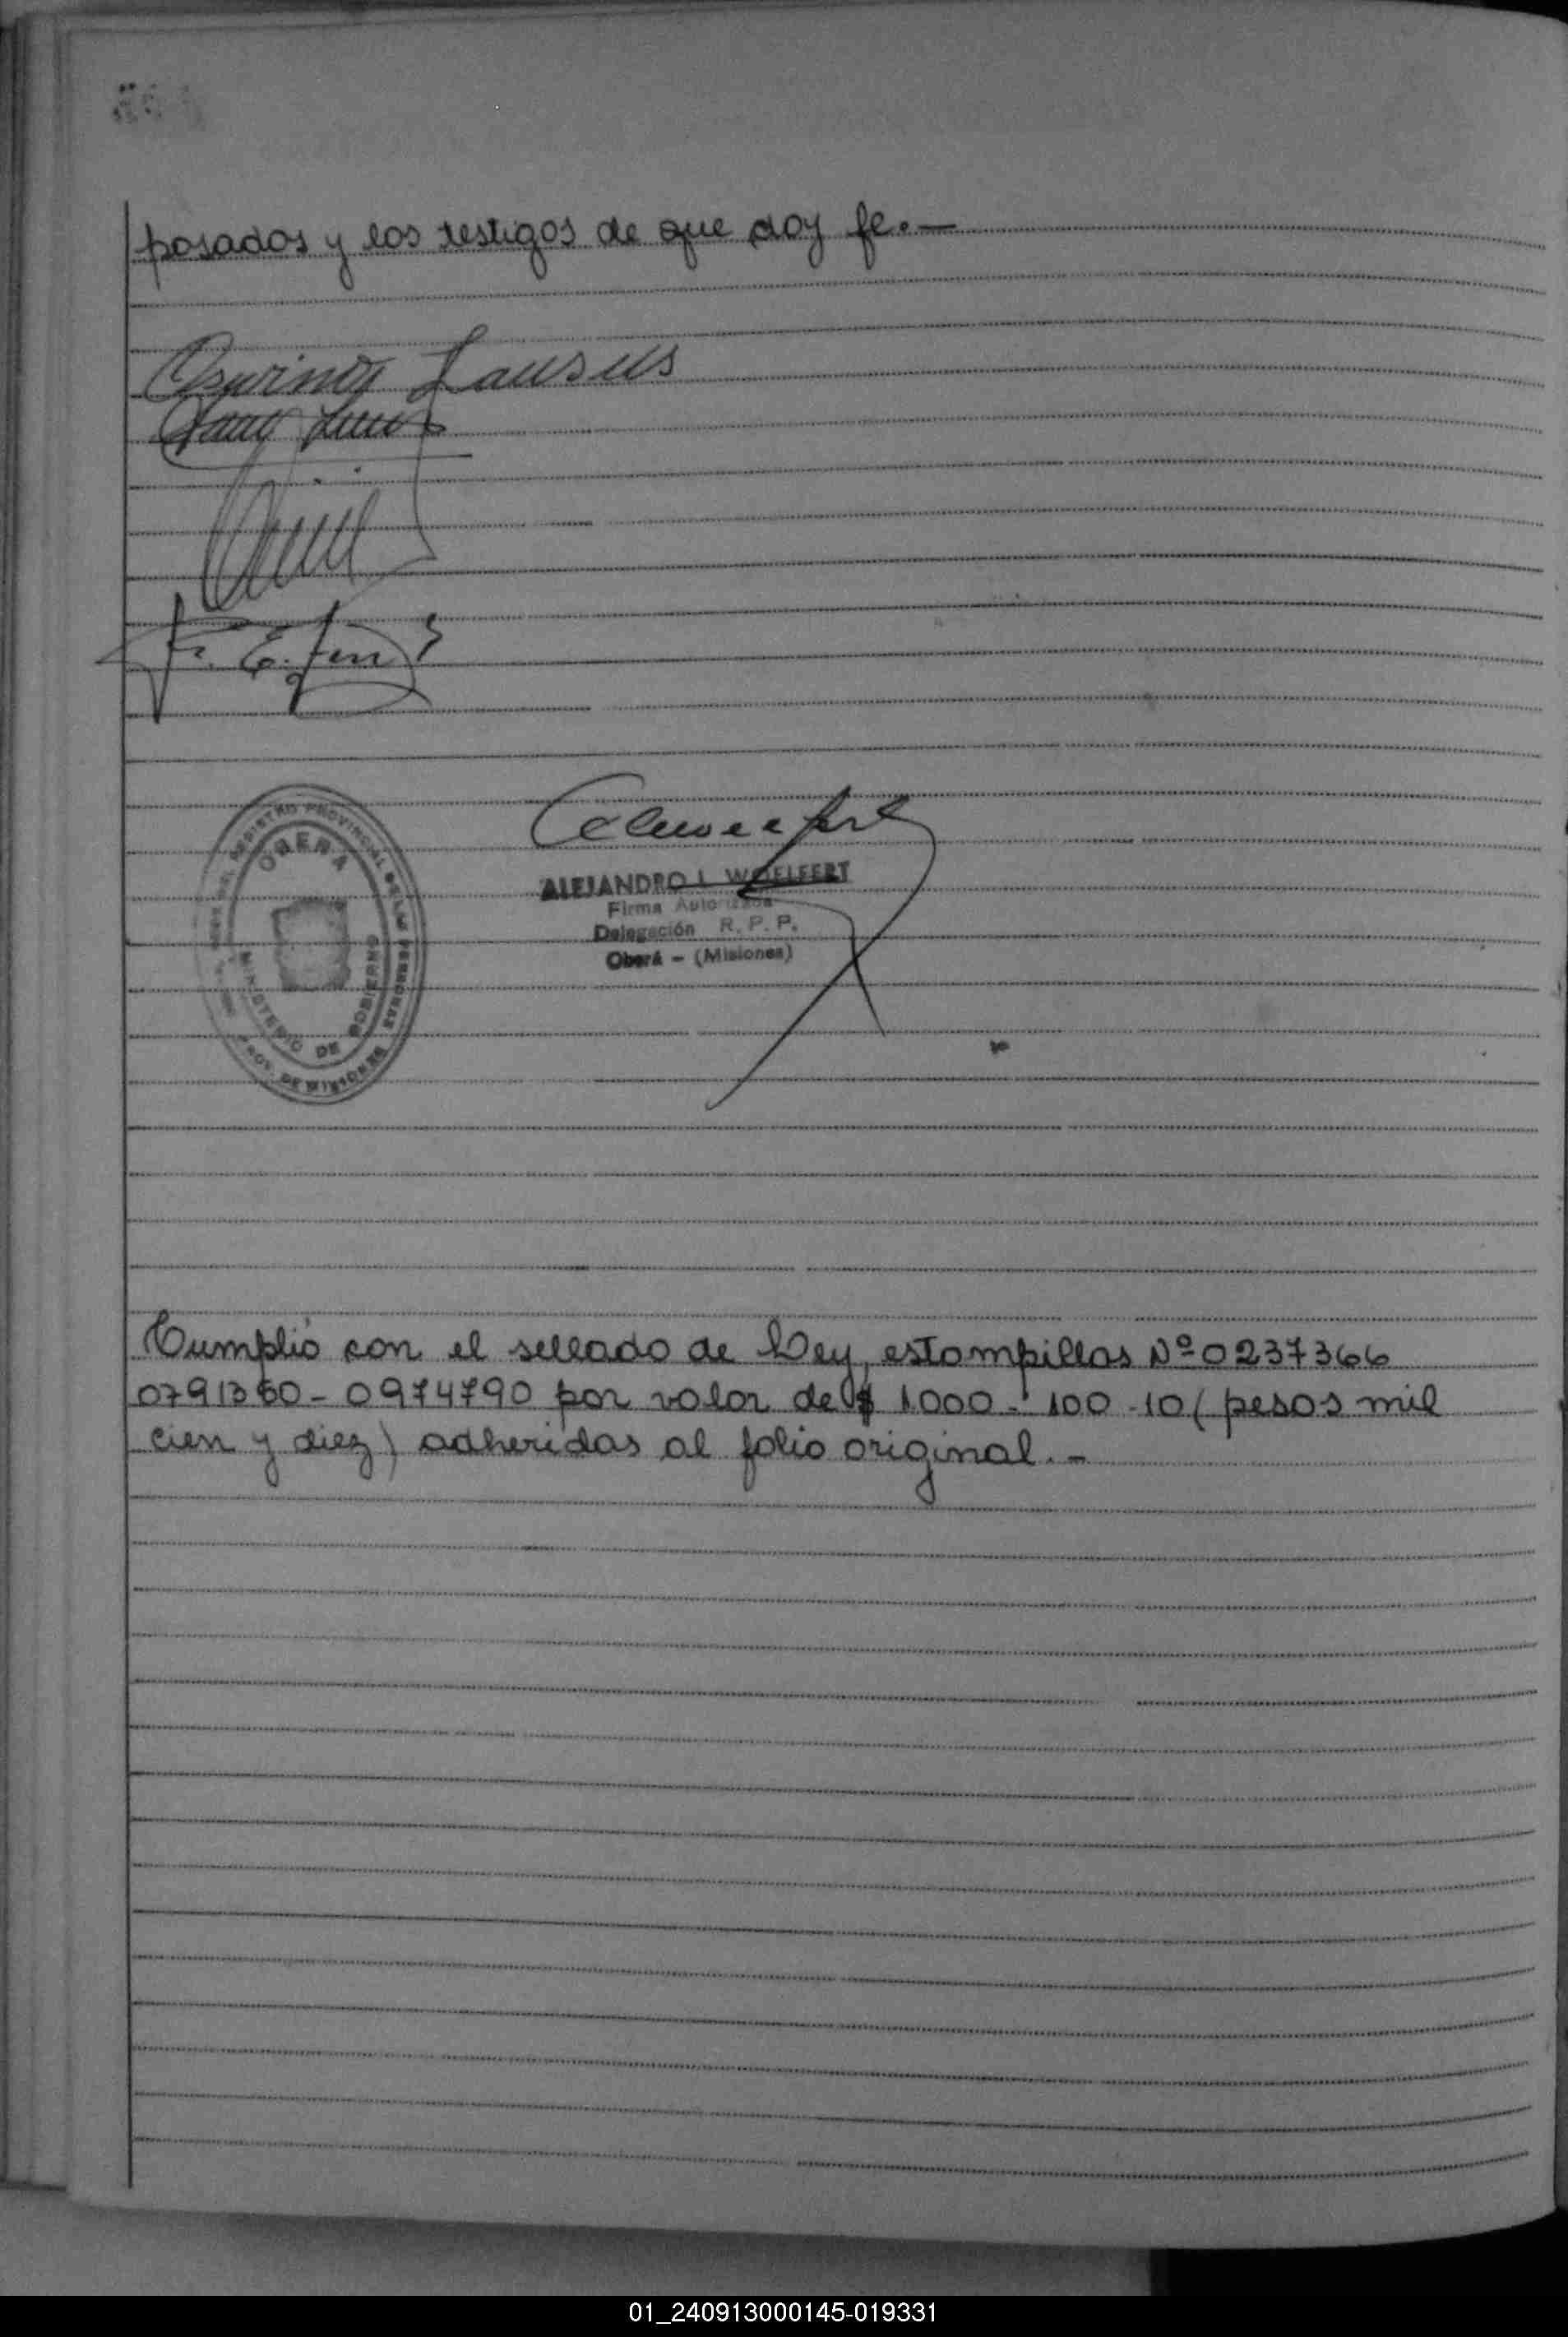 posados y los testigos de que doy fe.—
Lausus
REGISTRO PROVINCIAL DE LAS PERSONAS
OBERA
MINISTERIO DE GOBIERNO
PROV. DE MISIONES
ALEJANDRO L. WOELFERT
Firma Autorizada
Delegación R. P. P.
Oberá - (Misiones)
Cumplió con el sellado de Ley, estampillas Nº 0237366
0791360 - 0974790 por valor de $ 1.000 - 100 - 10 ( pesos mil
cien y diez ) adheridas al folio original. -
01_240913000145-019331